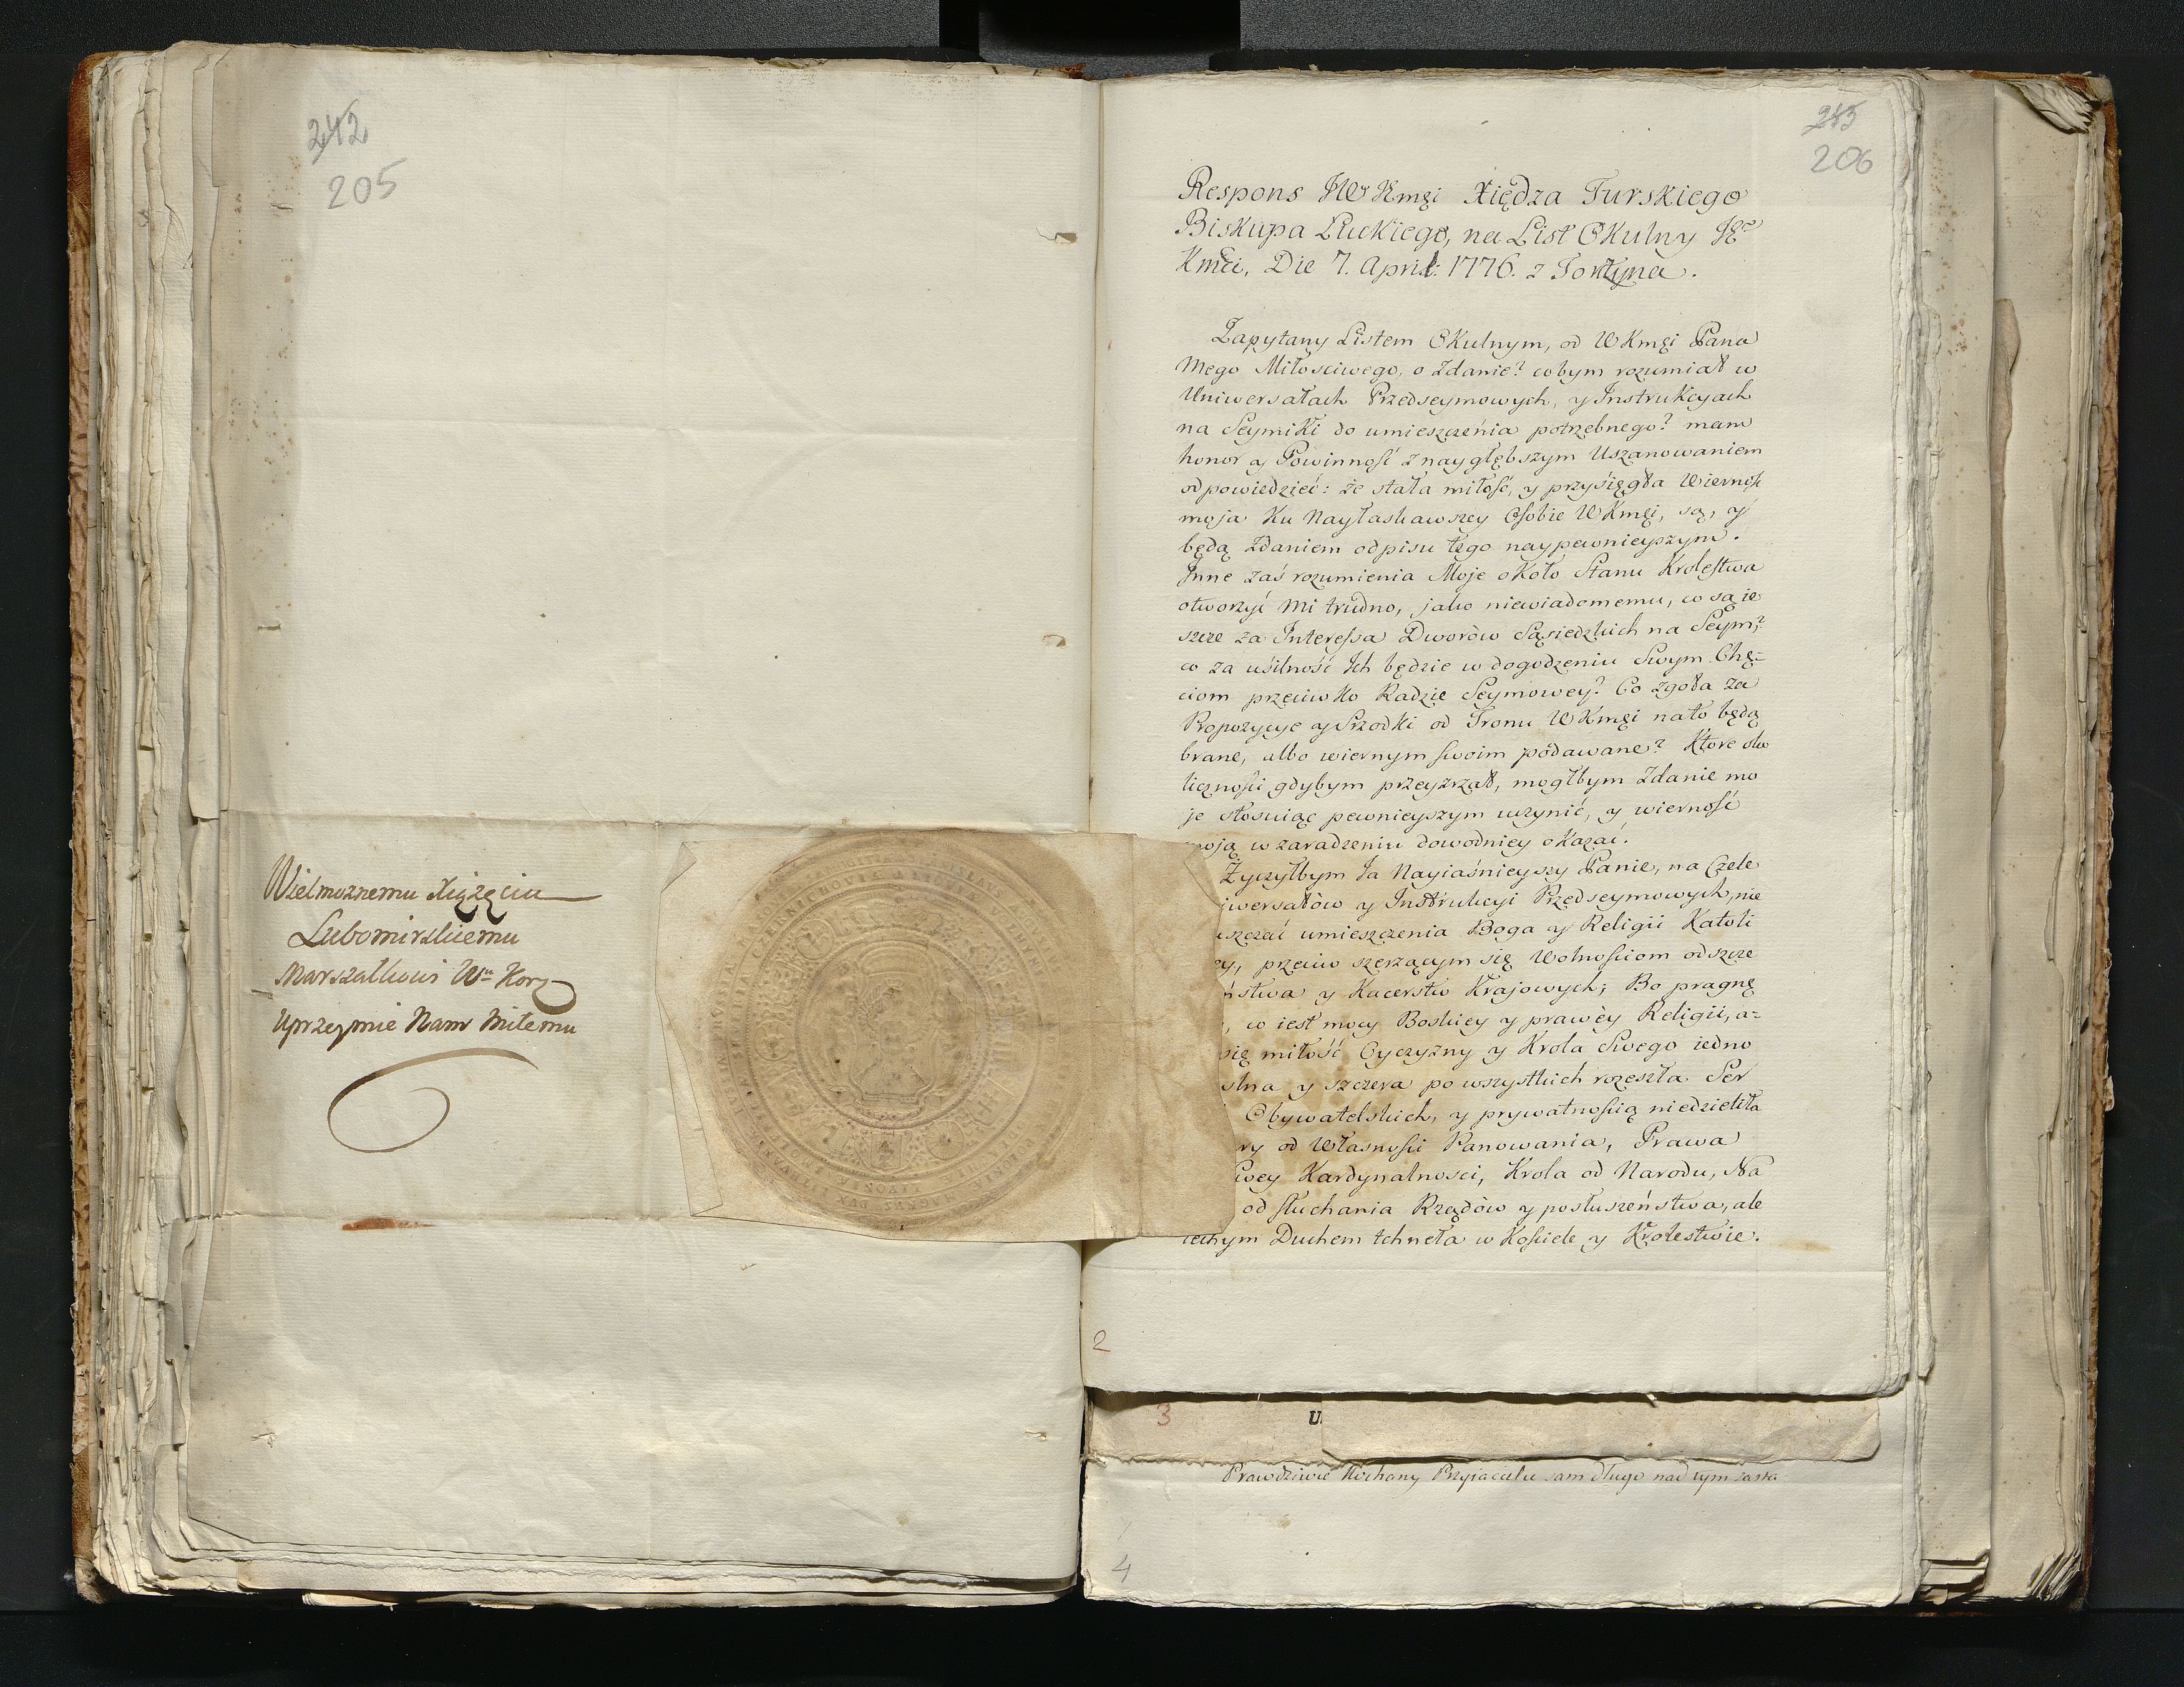 242
205
Wielmoznemu Xiążęciu
Lubomirskiemu
Marszałkowi Wu Korg
Uprzeymie Nam Miłemu
243
206
Respons JW Kmęi Xiędza Turskiego
Biskupa Łuckiego, na List Okulny
Kmći, Die 7. April: 1776. z Torczyna.
Zapytany Listem Okulnym, od WKmęi Pana
Mego Miłosciwego, o Zdanie? cobym rozumiał w
Uniwersałach Przedseymowych, y Instrukcyach
na Seymiki do umieszczenia potrzebnego? mam
honor y Powinność z naygłębszym Uszanowaniem
odpowiedzieć: że stała miłość, y przysięgła Wierność
moja ku Nayłaskawszey Osobie WKmęi, są, y
będą Zdaniem odpisu tego naypewnieyszym.
Inne zaś rozumienia Moje około Stanu Krolestwa
otworzyć mi trudno, jako niewiadomemu, co są ie
szcze za Interessa Dworów Sąsiedzkich na Seym?
co za usilność Ich będzie w dogodzeniu Swym Chę=
ciom przeciwko Radzie Seymowey? Co zgoła za
Propozycye y Srzodki od Tronu WKmęi nato będą
brane, albo wiernym swoim podawane? Ktore oko
liczności gdybym przeyzrzał, mogłbym Zdanie mo
je stosuiąc pewnieyszym uczynić, y wierność
moją w zaradzeniu dowodniey okazać.
Zyczyłbym Ja Nayiaśnieyszy Panie, na Czele
iwersałów y Instrukcyi Przedseymowych, nie
szczać umieszczenia Boga y Religii Katoli
ey, przeciw szerzącym się Wolnościom odszcze
ństwa y Kacerstw Krajowych; Bo pragnę
, co iest mocy Boskiey y prawéy Religii, a=
się miłość Oyczyzny y Krola Swego iedno
slna y szczera po wszystkich rozeszła Ser
Obywatelskich, y prywatnością niedzieliła
ry od Własności Panowania, Prawa
wey Kardynalnosci, Krola od Narodu, Na
od słuchania Rządów y posłuszeństwa, ale
iednym Duchem tchneła w Kościele y Krolestwie.
2
3
U
Prawdziwie Kochany Przyiacielu sam długo nad tym zasta
4